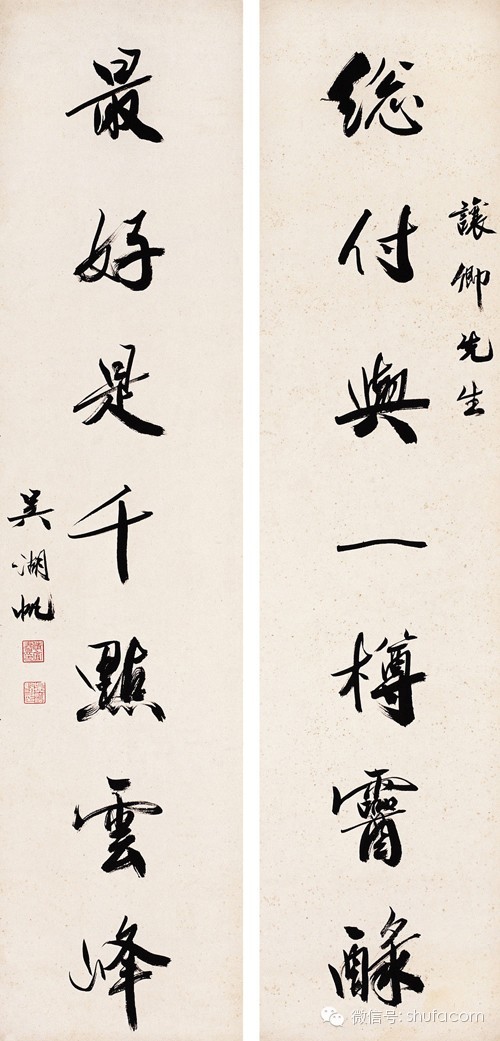 總付與一樽醽醁
讓卿先生
最好是千點雲峰
吳湖帆
微信号: shufacom